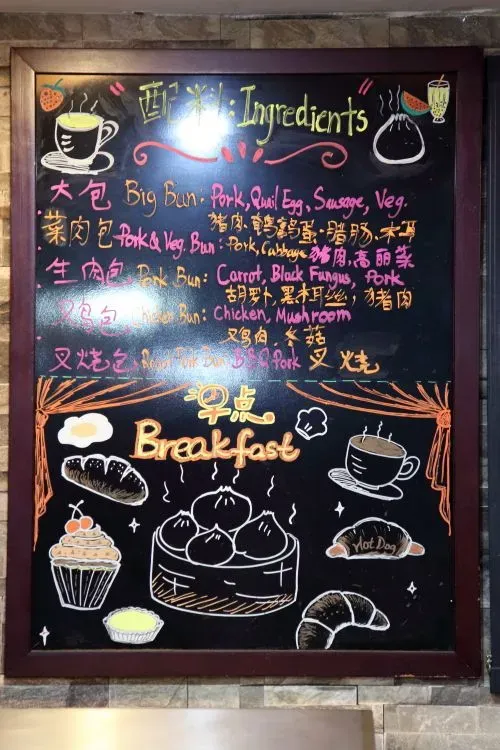 " 配料: Ingredients "
大包 Big Bun: Pork, Quail Egg, Sausage, Veg.
猪肉, 鹌鹑蛋, 腊肠, 木耳
菜肉包 Pork & Veg. Bun: Pork, Cabbage 猪肉, 高丽菜
生肉包 Pork Bun: Carrot, Black Fungus, Pork
胡萝卜, 黑木耳丝, 猪肉
叉鸡包 Chicken Bun: Chicken, Mushroom
叉鸡肉, 冬菇
叉烧包 Roast Pork Bun: B.B.Q Pork 叉烧
早点
Breakfast
Hot Dog